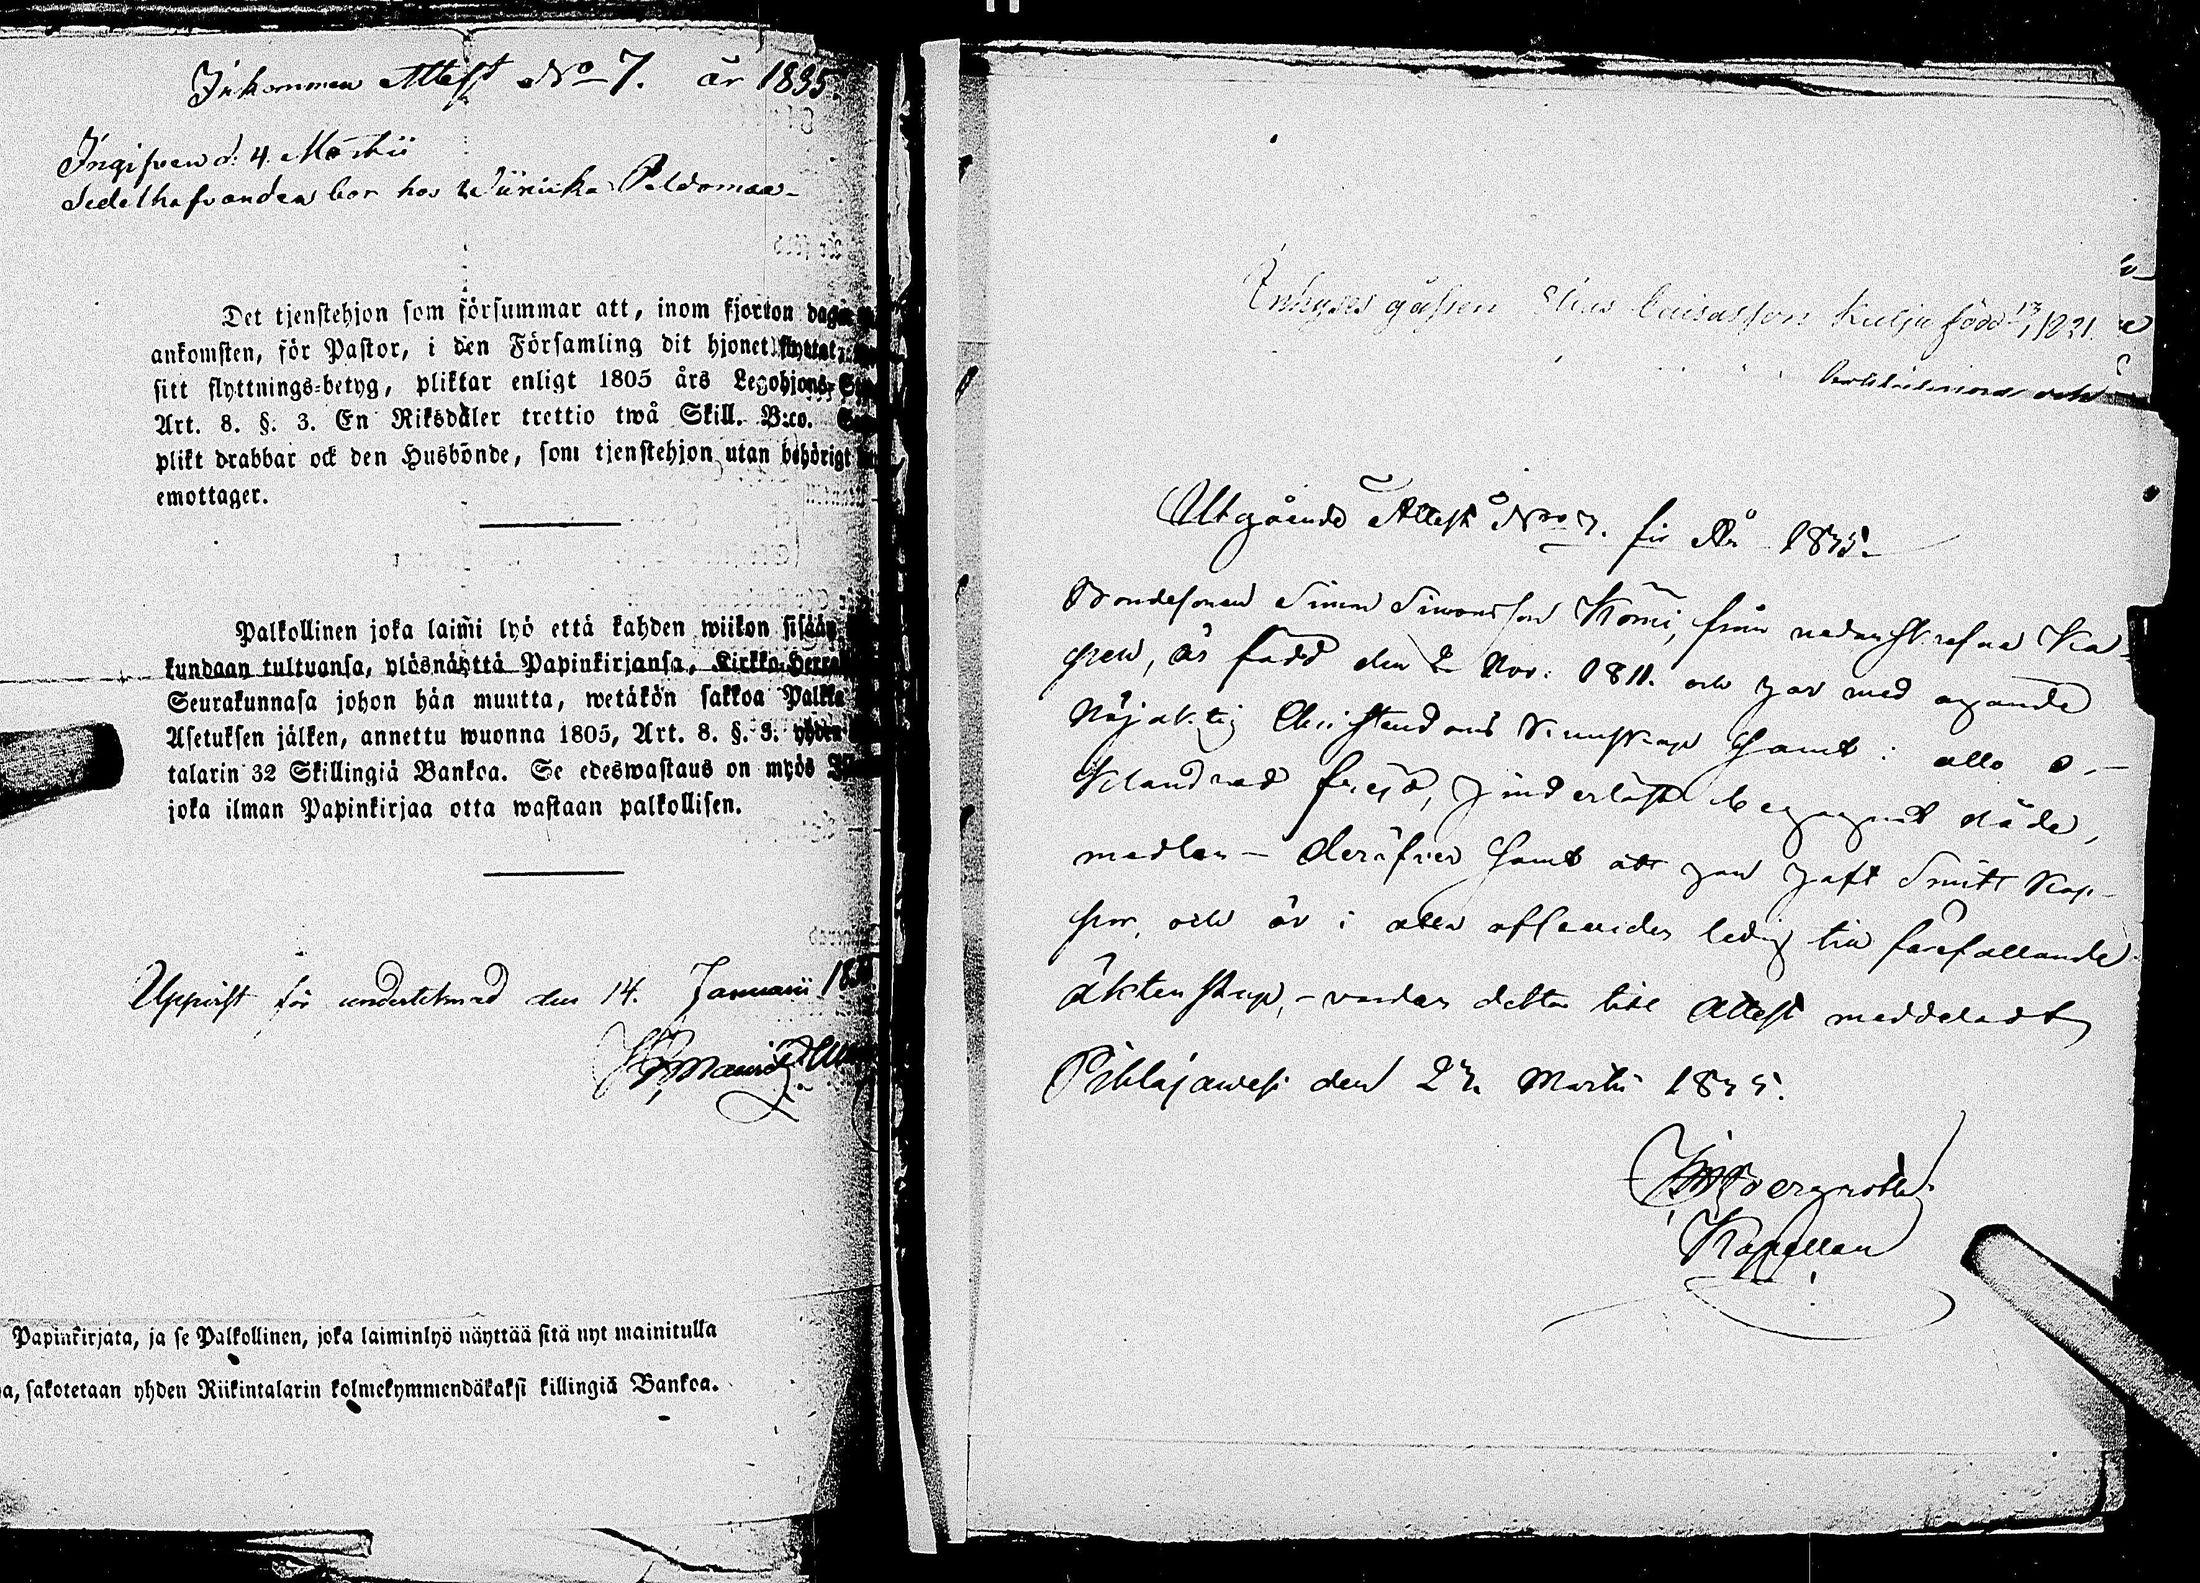 Inkommen Attest No 7. år 1835.
Ingifven d: 4 Martii
Sedelhafvanden bor hos Peldomaa
Det tjenstehjon som försummar att, inom fjorton dagar
ankomsten, för Pastor, i den Församling dit hjonet flyttat,
sitt flyttnings-betyg, pliktar enligt 1805 års Legohjons-
Art. 8. §. 3. En Riksdaler trettio twå Skill. B:co.
plikt drabbar ock den Husbonde, som tjenstehjon utan behörigt
emottager.
Palkollinen joka laimi lyö että kahden wiikon sisään
kundaan tultuansa, ylösnäyttä Papinkirjansa, Kirkko-Herra
Seurakunnasa johon hän muutta, wetäkön sakkoa Palkka
Asetuksen jälken, annettu wuonna 1805, Art. 8. §. 3. yhden
talarin 32 Skillingiä Bankoa. Se edeswastaus on myös
joka ilman Papinkirjaa otta wastaan palkollisen.
Uppvist för undertecknad den 14. Januarii
Papinkirjata, ja se Palkollinen, joka laiminlyö näyttää sitä nyt mainitulla
sakotetaan yhden Riikintalarin kolmekymmendäkaksi killingiä Bankoa.
Inhyses gossen Elias född 1821.
Utgående Attest No 7. för År 1835.
Bondesonen Simon Simonsson Kömi, från nedanskrefne Ka-
pell, är född den 2 Nov: 1811. och har med ägande
Nöjaktig Christendoms Kunskap samt i allo o-
klandrad frejd, begagnat nåde,
medlen derstädes samt att han haft Smitt Kop-
por, och är i alla afseenden ledig till förefallande
äktenskap, - varder detta till Attest meddeladt
Pihlajawesi den 27 Martii 1835.
Kapellan